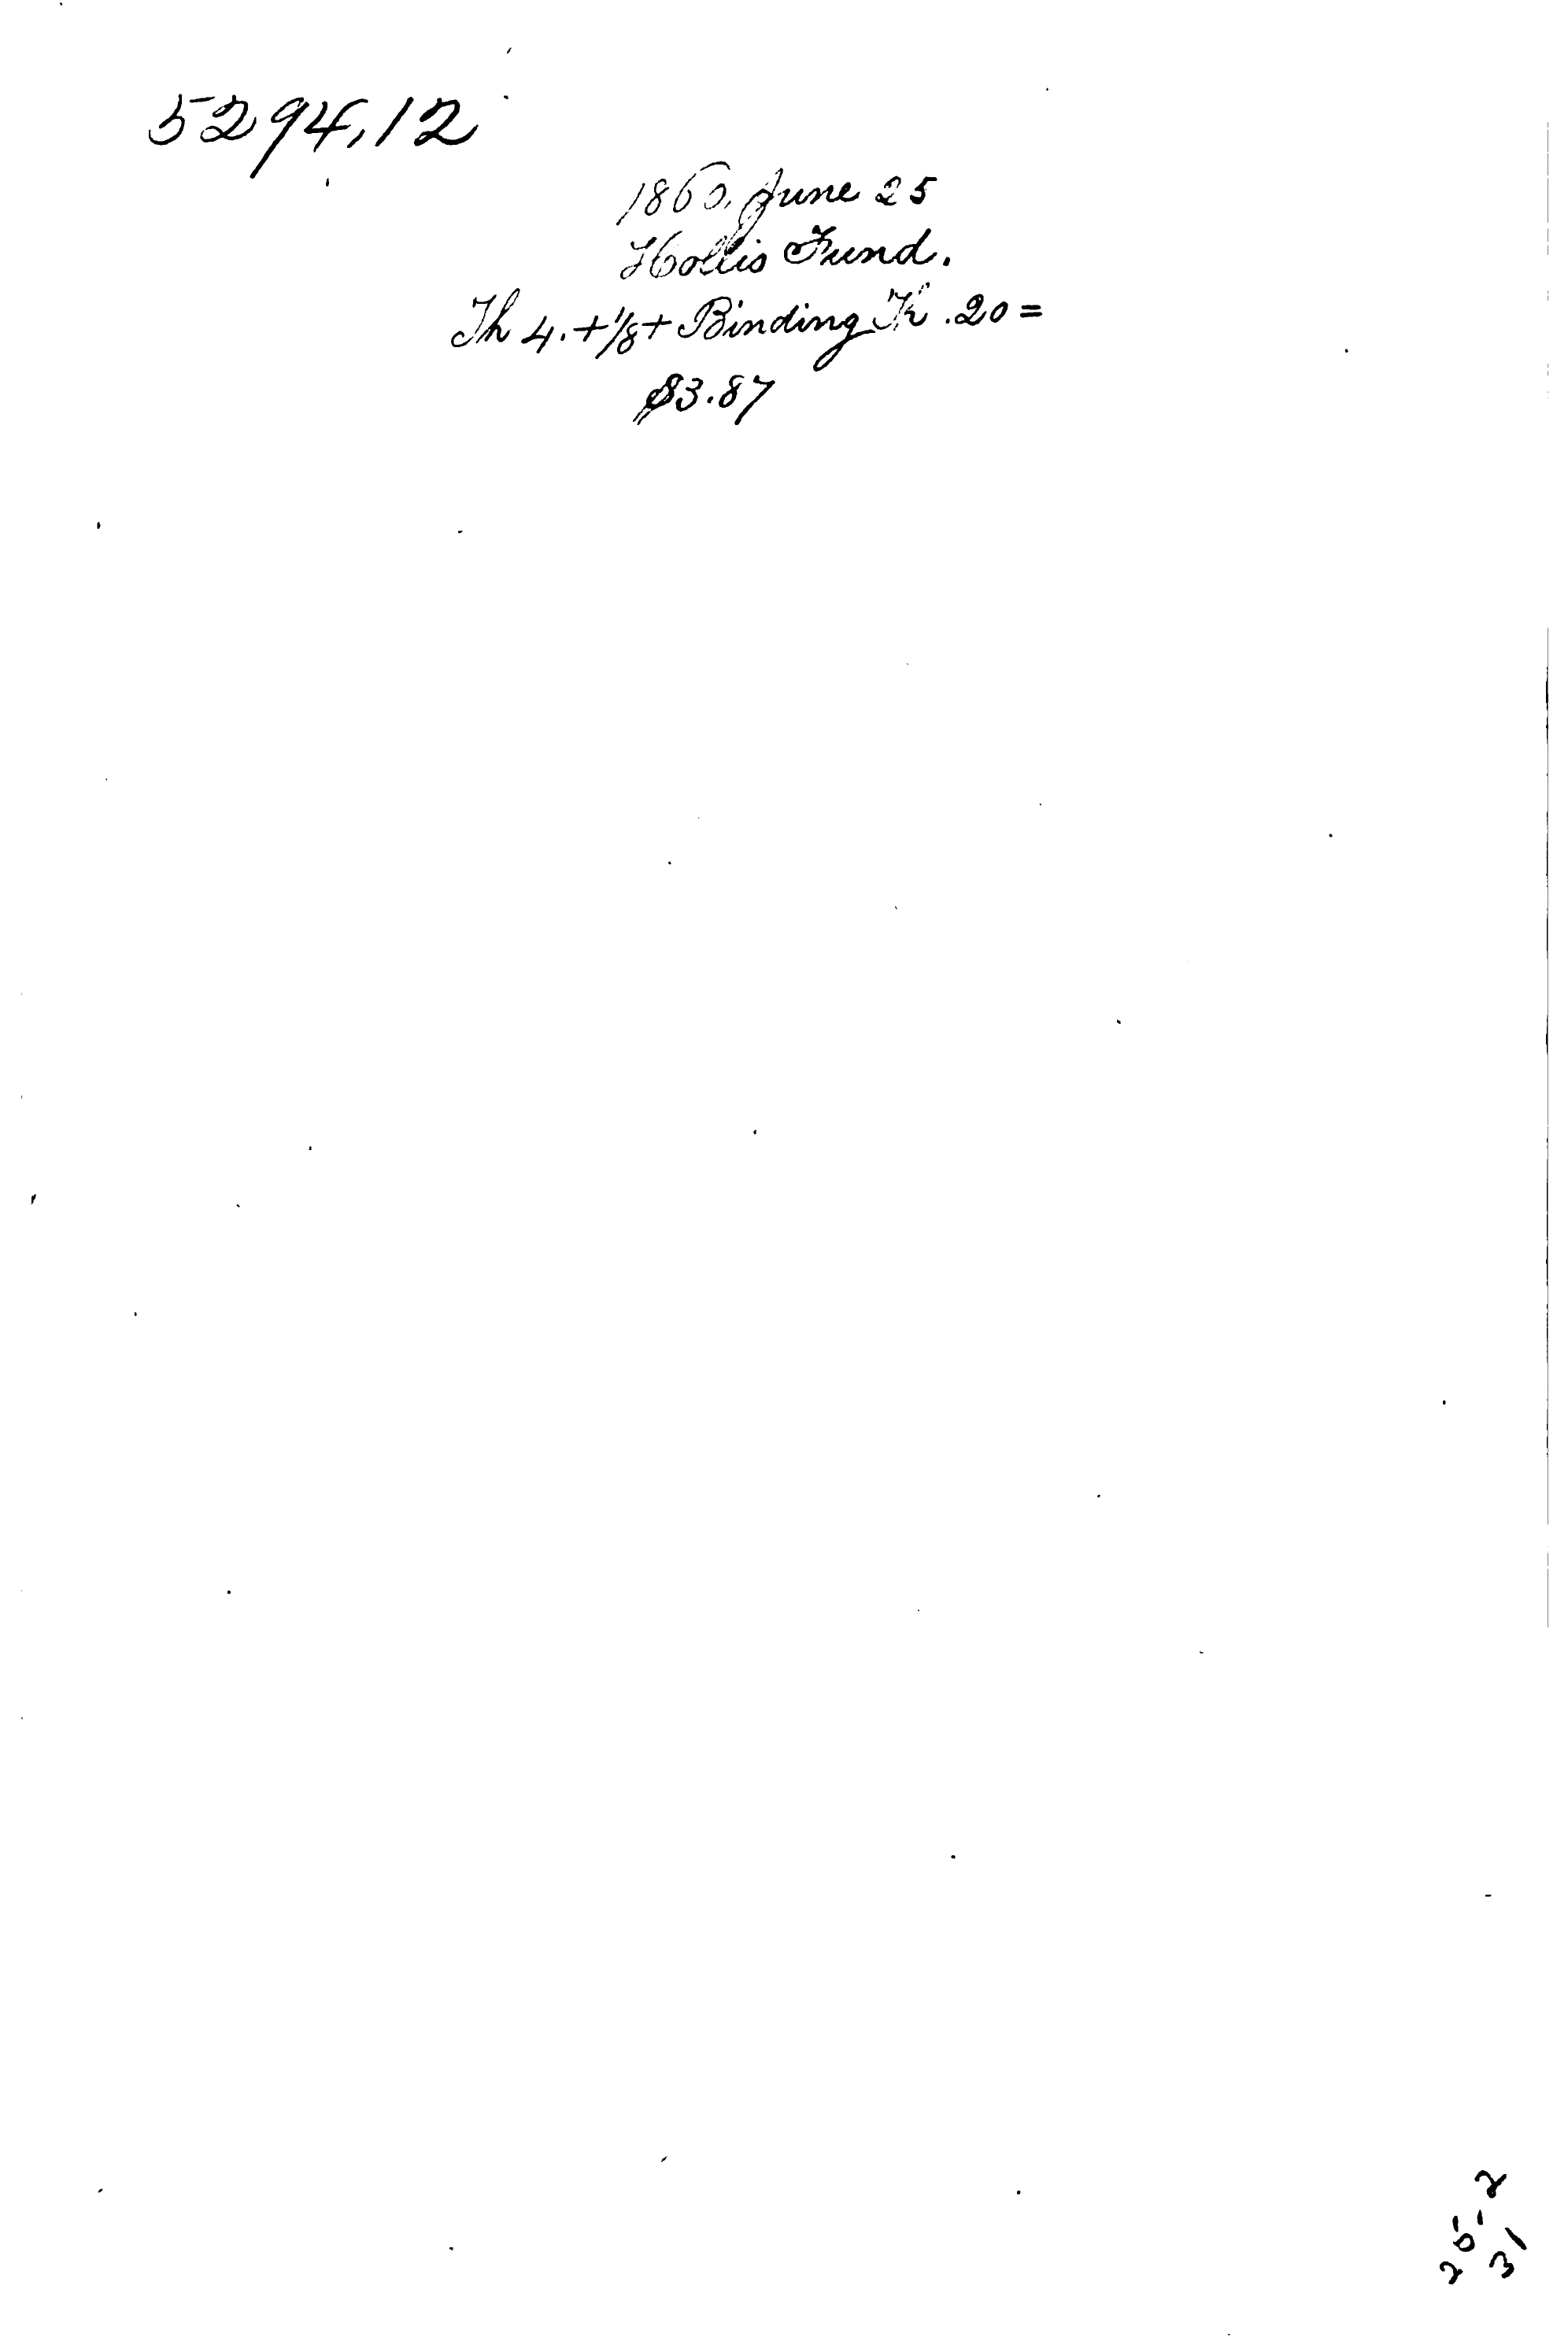 5294,12
1860, June 25
Hollis Fund.
Th 4. + 1/8 + Binding K .20 =
$3.87